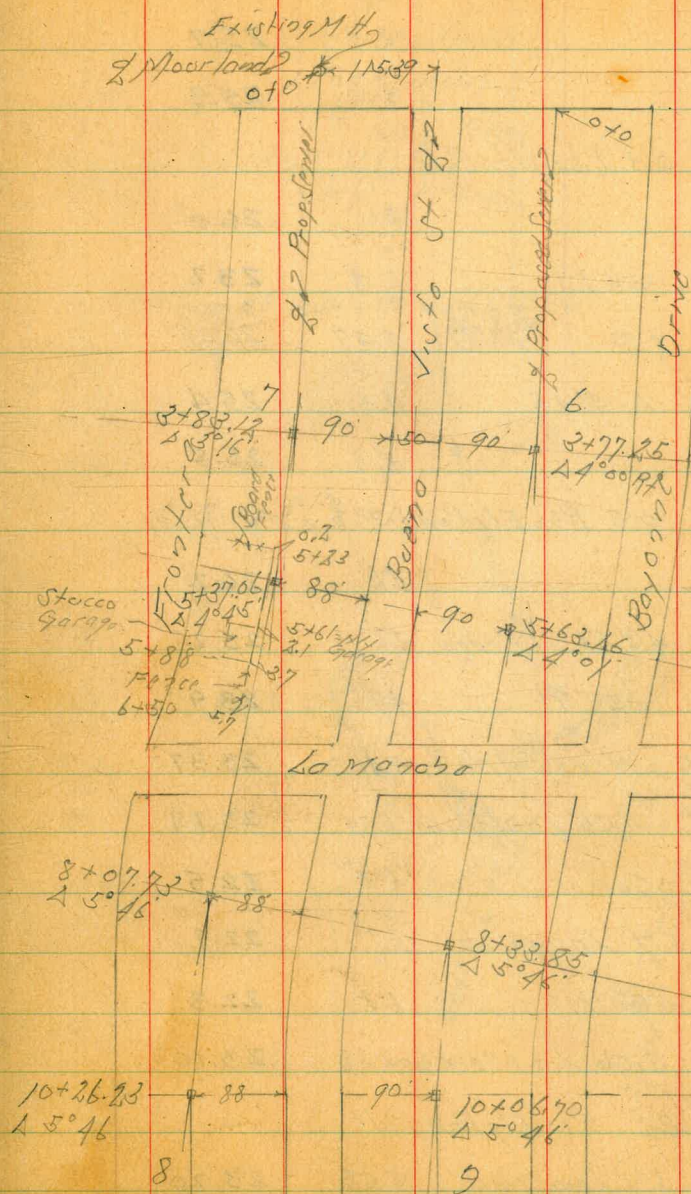 Existing M H
℄ Moorland
115.39
0+0
0+0
℄ Prop. Sewer
Visto St ℄
℄ Proposed Sewer
Drive
7
6
3+83.12
Δ 3°16'
90
50
90
3+77.25
Δ 4°00' Rt
Frontera
Board
Fence
Bueno
Bayonne
0.2
5+23
5+37.06
Δ 4°45'
88'
90
5+63.16
Δ 4°01'
Stucco
Garage
5+61=
Garage
2.1
5+88
Fence
3.7
6+50
5.7
La Mancha
8+07.73
Δ 5°46'
88'
8+33.85
Δ 5°46'
10+26.23
Δ 5°46
88
90
10+06.70
Δ 5°46'
8
9